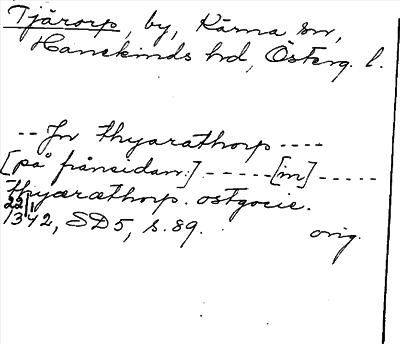 Tjärorp, by, Kärna sn,
Hanekinds hd, Österg. l.
-- Jn thyarathorp ----
[på frånsidan:] ----- [in] -----
thyæræthorp. ostgocie.
22/1 1342, SD5, s. 89. orig.